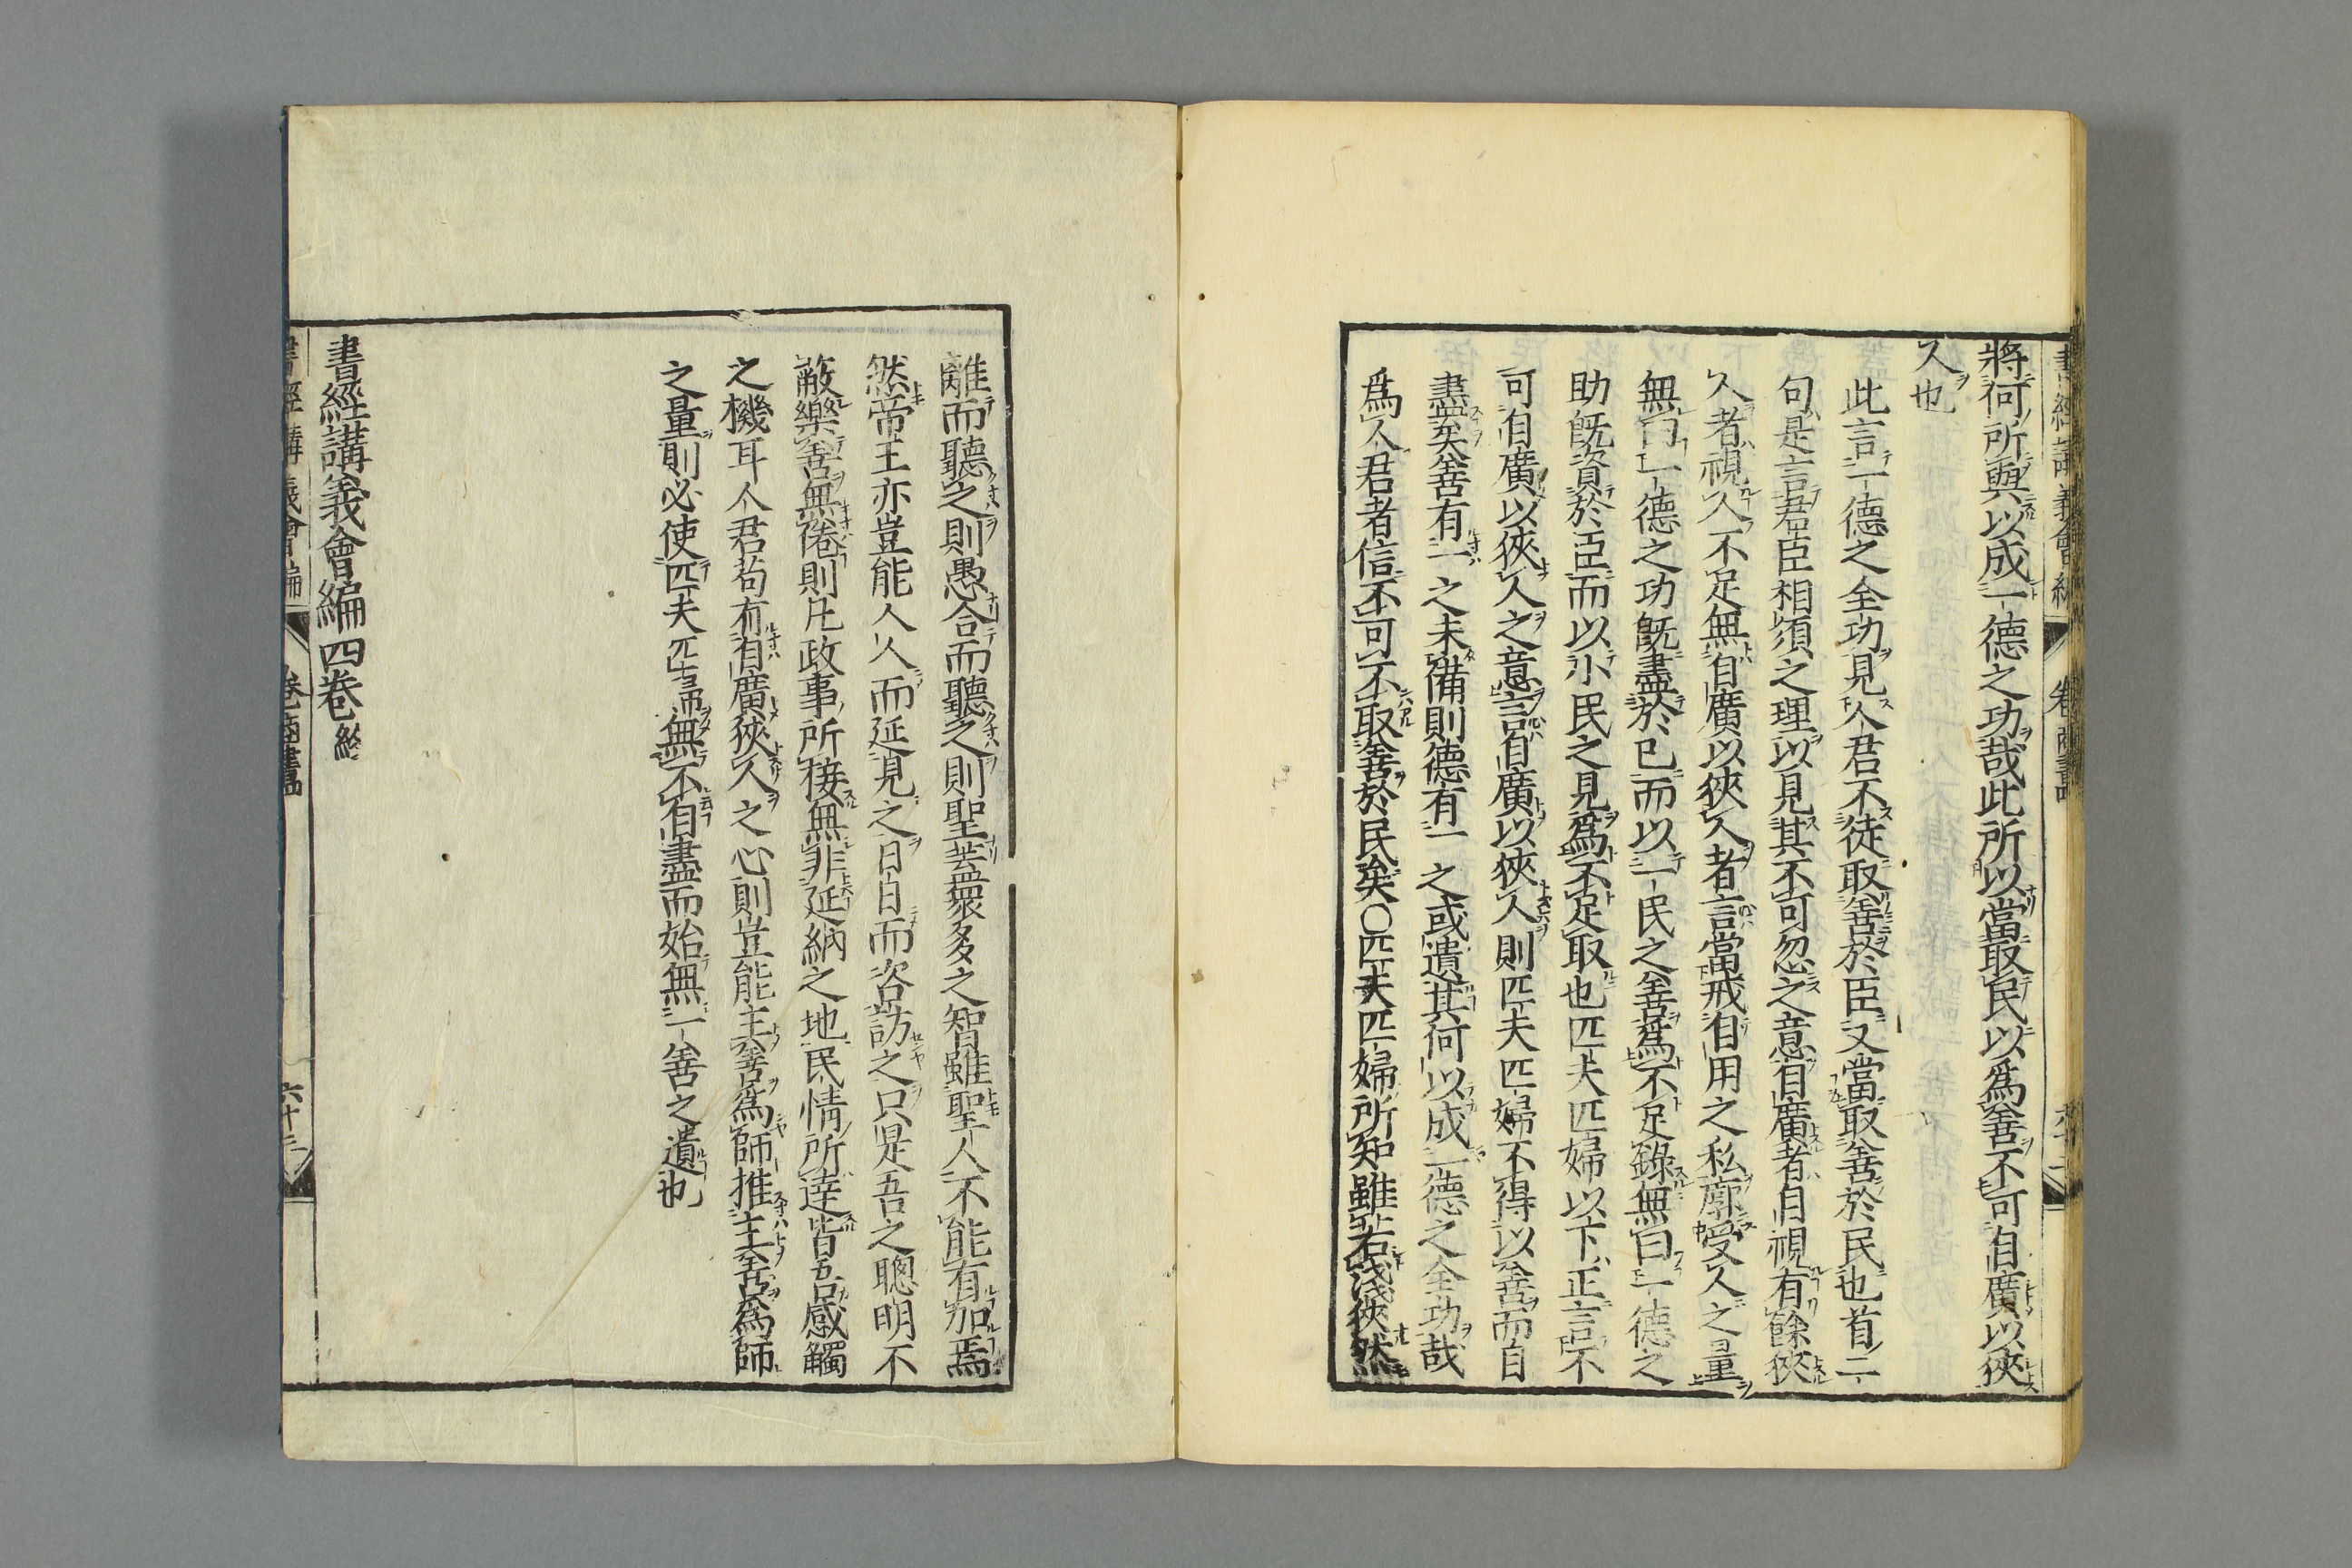 將何所與以成一德之功哉此所以當取民以爲善不可自廣以狹
人也
此言一德之全功見人君不徒取善於臣又當取善於民也首二
句是言君臣相須之理以見其不可忽之意自廣者自視有餘狹
人者視人不足無自廣以狹人者言當戒自用之私廓受人之量
無曰一德之功既盡於已而以一民之善爲不足錄無曰一德之
助既資於臣而以小民之見爲不足取也匹夫匹婦以下正言不
可自廣以狹人之意言自廣以狹人則匹夫匹婦不得以善而自
盡矣善有一之未備則德有一之或遺其何以成一德之全功哉
爲人君者信不可不取善於民矣○匹夫匹婦所知雖若淺狹然
離而聽之則愚合而聽之則聖葢衆多之智雖聖人不能有加焉
然帝王亦豈能人人而延見之日日而咨訪之只是吾之聰明不
蔽樂善無倦則凡政事所接無非延納之地民情所達皆吾感觸
之機耳人君苟有自廣狹人之心則豈能主善爲師推主善爲師
之量則必使匹夫匹婦無不自盡而始無一善之遺也
書經講義會編四卷終
書經講義會編 卷四 商書 六十二